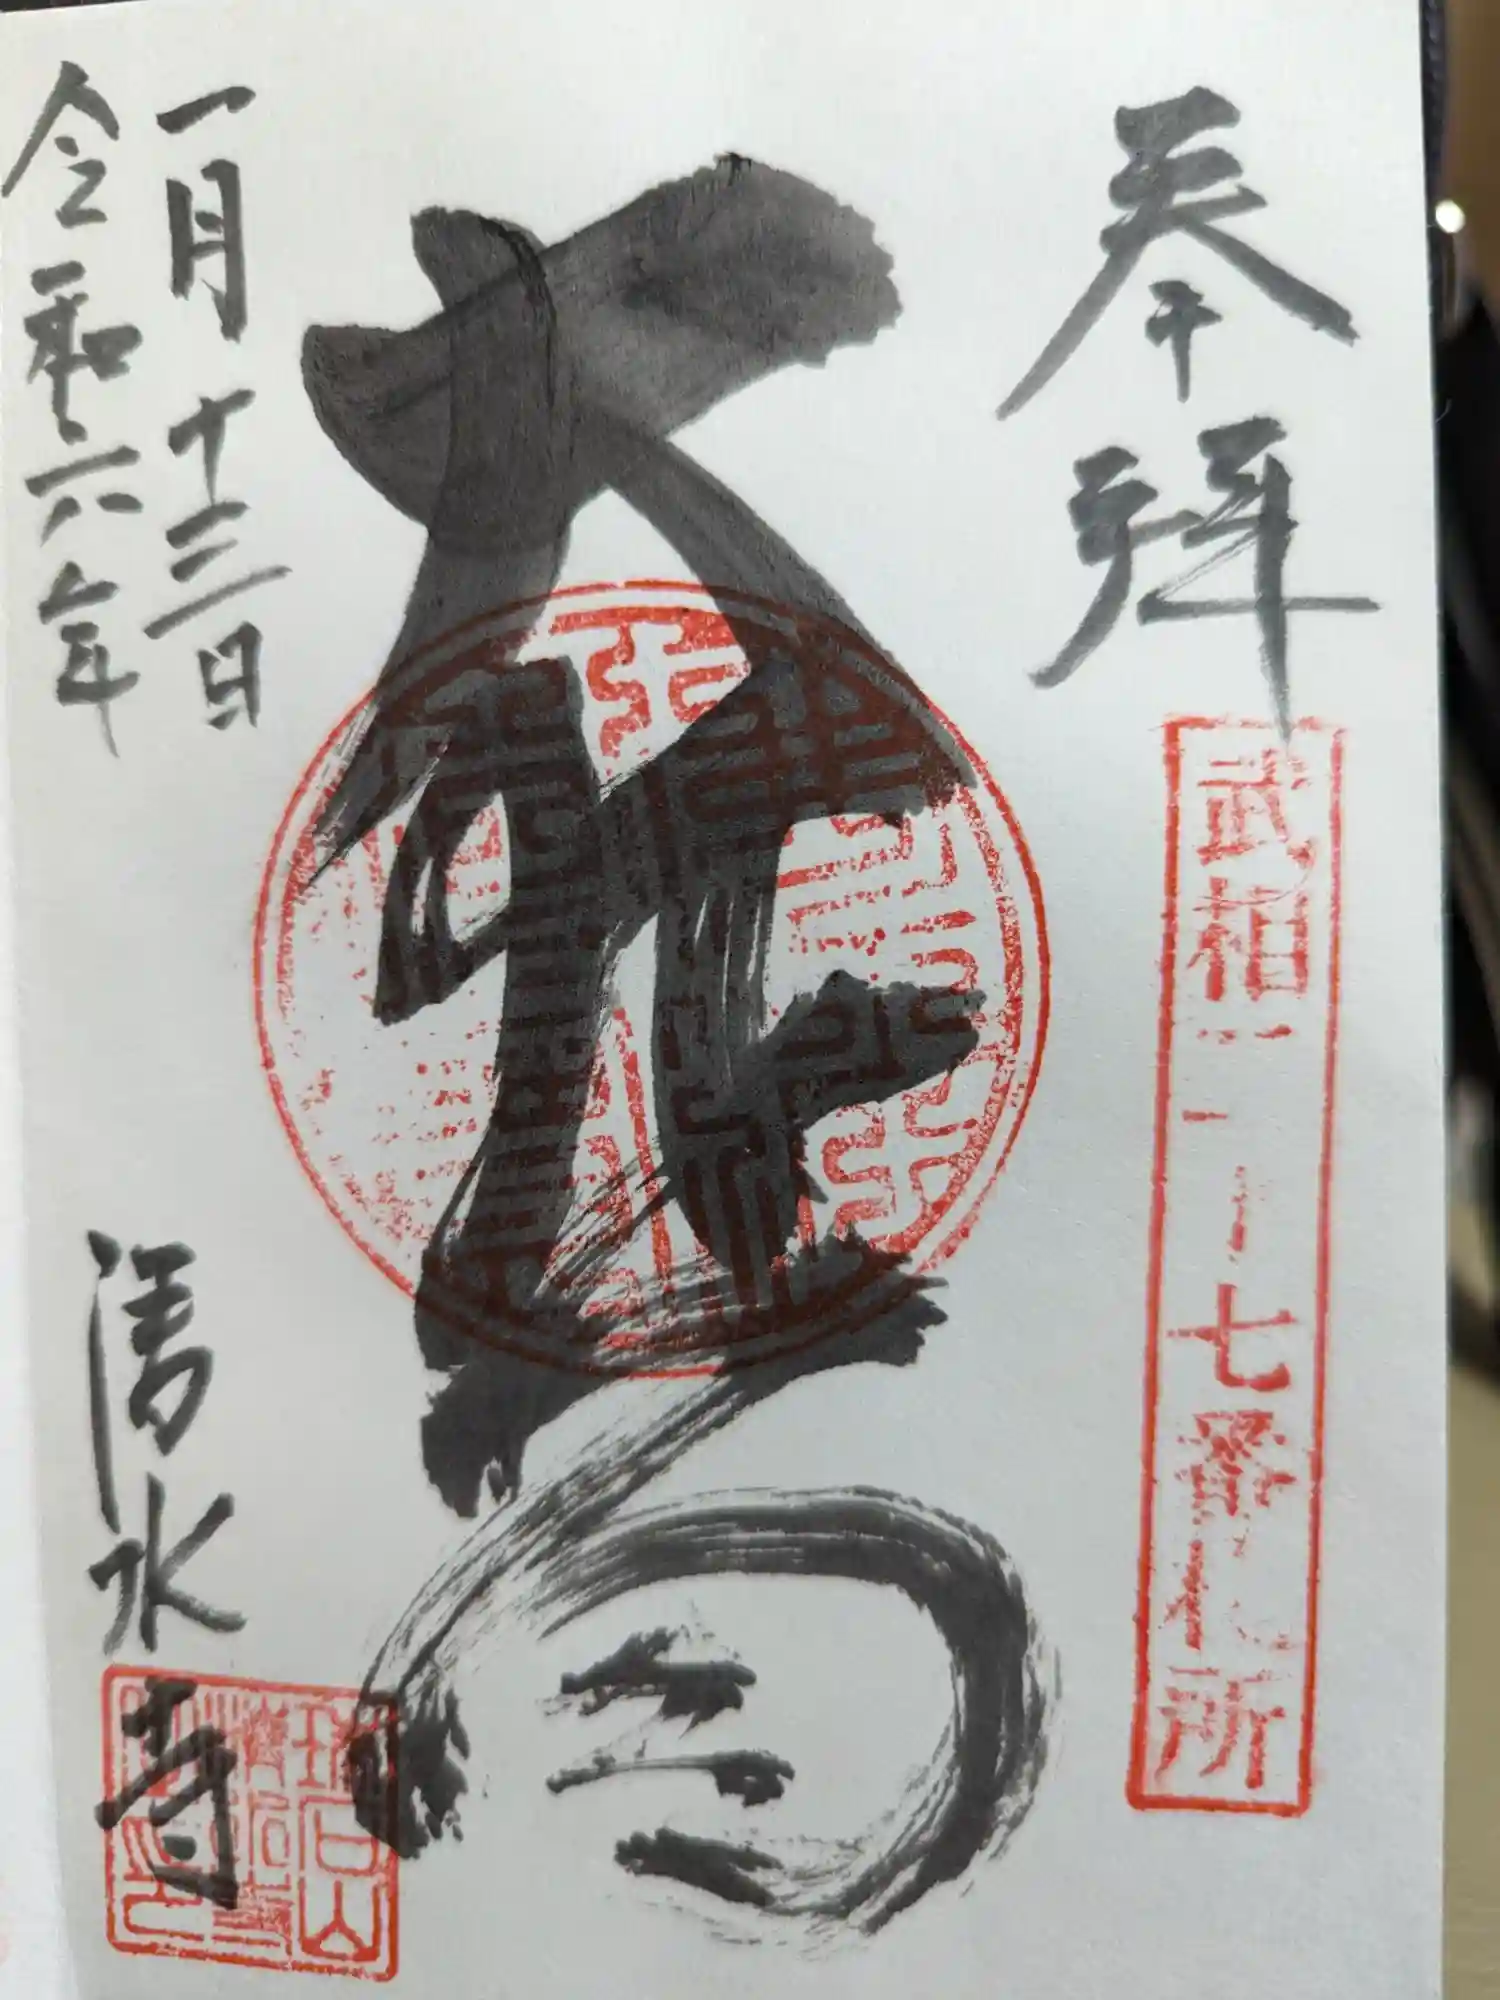 奉拝
武相二十七番札所
大悲閣
一月十三日
令和六年
清水寺